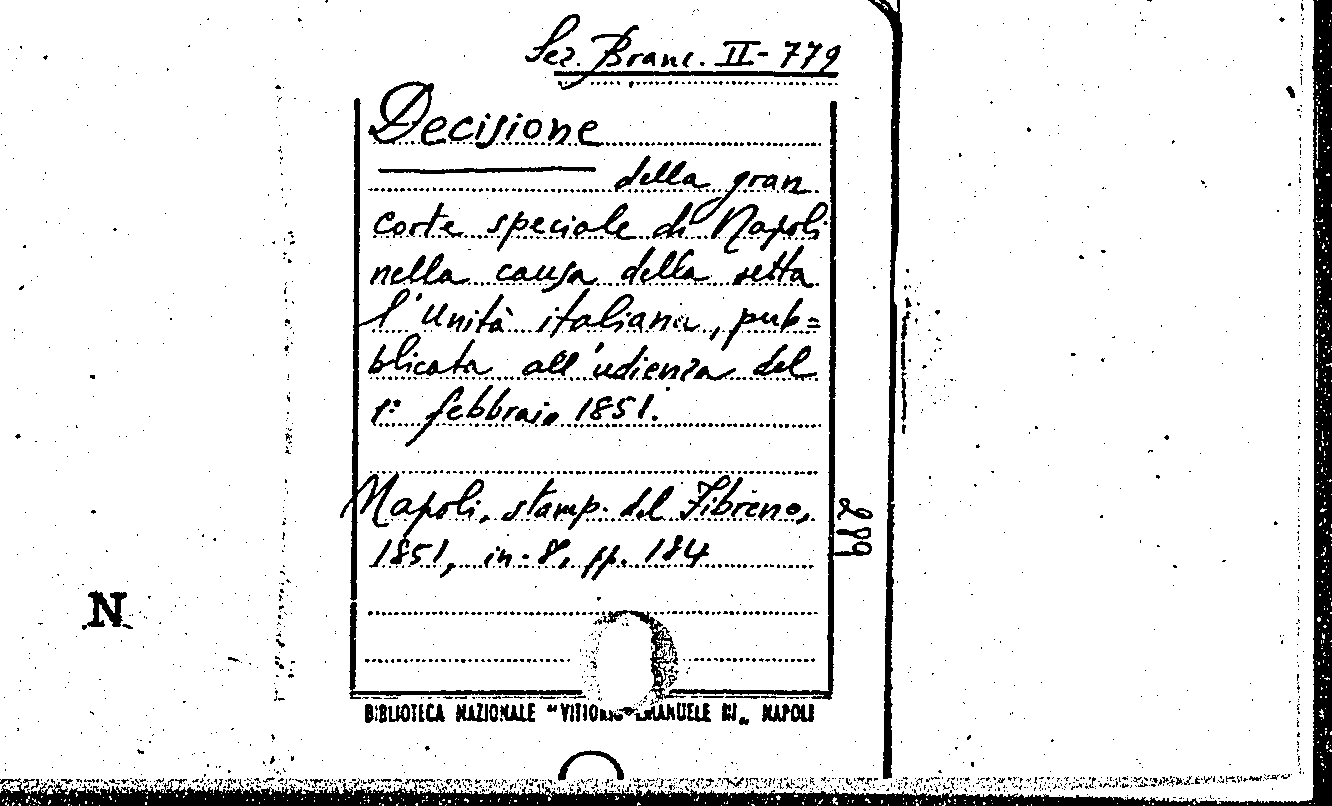 Sez. Branc. II - 779
Decisione
della gran
corte speciale di Napoli
nella causa della setta
l'Unità italiana, pub=
blicata all'udienza del
1: febbraio 1851.
Napoli, stamp. del Fibreno,
1851, in-8, pp. 184
299
N
BIBLIOTECA NAZIONALE "VITTORIO EMANUELE III„ NAPOLI